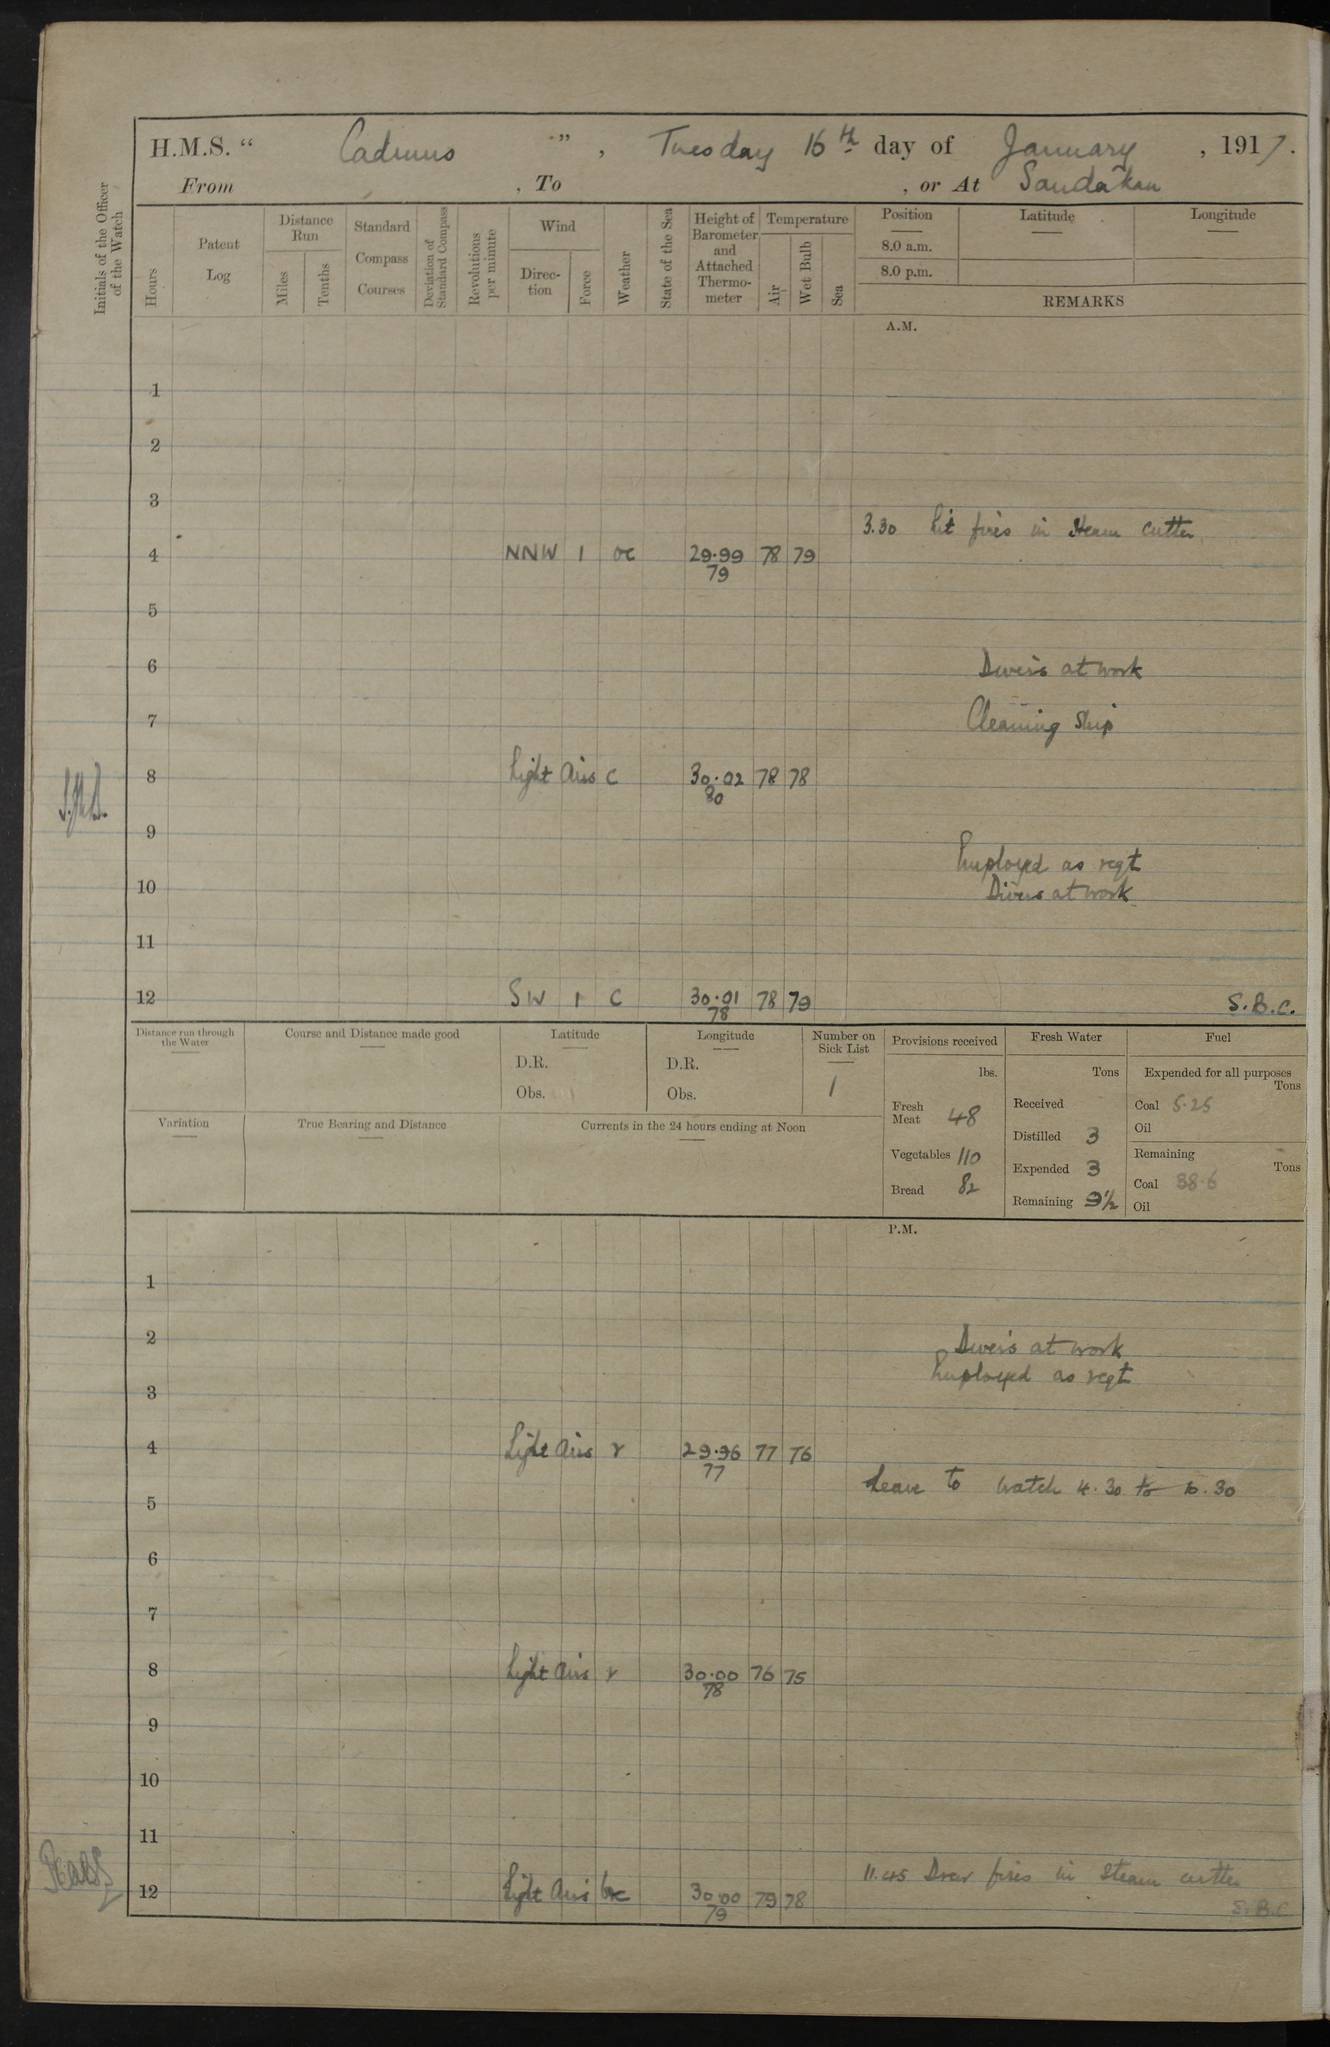 H.M.S. “ Cadmus ” , Tuesday 16th day of January , 1917.
From , To , or At Sandakan
Initials of the Officer of the Watch
Hours
Patent Log
Distance Run
Miles
Tenths
Standard Compass Courses
Deviation of Standard Compass
Revolutions per minute
Wind
Direc-tion
Force
Weather
State of the Sea
Height of Barometer and Attached Thermo-meter
Temperature
Air
Wet Bulb
Sea
Position Latitude Longitude
8.0 a.m.
8.0 p.m.
REMARKS
A.M.
1
2
3
3.30 Lit fires in Steam Cutter
4 NNW 1 oc 29.99 78 79
79
5
6 Divers at work
7 Cleaning Ship
8 Light Airs c 30.02 78 78
80
9
Employed as reqt
10 Divers at work
11
12 SW 1 C 30.01 78 79
78
S.B.C.
Distance run through the Water
Course and Distance made good
Latitude
D.R.
Obs.
Longitude
D.R.
Obs.
Number on Sick List
1
Variation
True Bearing and Distance
Currents in the 24 hours ending at Noon
Provisions received
lbs.
Fresh Meat 48
Vegetables 110
Bread 82
Fresh Water
Tons
Received
Distilled 3
Expended 3
Remaining 9½
Fuel
Expended for all purposes
Tons
Coal 5.25
Oil
Remaining
Tons
Coal 38.6
Oil
P.M.
1
2 Divers at work
Employed as reqt
3
4 Light Airs r 29.96 77 76
77
Leave to watch 4.30 to 10.30
5
6
7
8 Light Airs r 30.00 76 75
78
9
10
11
11.45 Drew fires in Steam cutter
12 Light Airs bc 30.00 79 78
79
S.B.C.